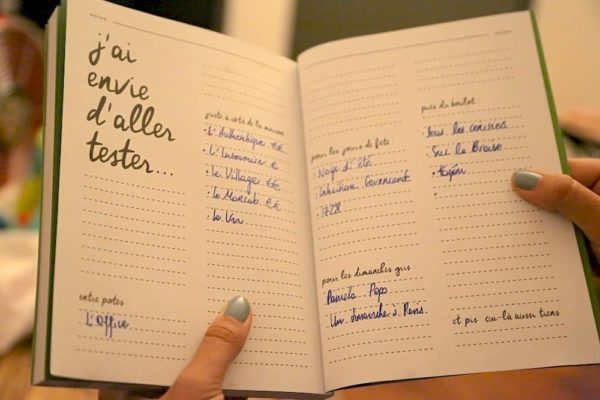 j'ai
envie
d'aller
tester...
entre potes
L'Office
juste à côté de la maison
- L'Authentique €€
- L'Insomnie €
- Le Village €€
- Le Maniab €€
- Le Van
pour les jours de fête
- Neige d'été
- Gourmande
- 1728
pour les dimanches gris
Pamela Popo
Un dimanche à Paris
près du boulot
- Tous les cerisiers
- Sur la Braise
et pis çui-là aussi tiens